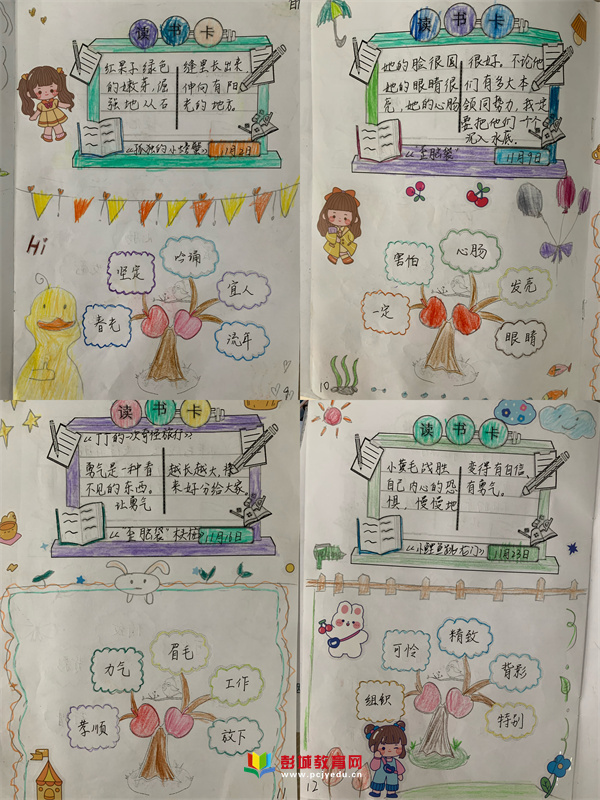 读书卡
红果子绿色 缝里长出来,
的嫩芽,
强地从石
伸向有阳
光的地方。
《孤独的小螃蟹》 11月2日
Hi
坚定
吟诵
宜人
春光
流年
9
读书卡
她的脸很圆 很好。不论他
她的眼睛很 们有多大本
亮,她的心肠 领同势力,我
要把他们一个个
沉入水底。
《歪脑袋》 11月9日
害怕
心肠
发亮
一定
眼睛
10
读书卡
《丁丁的一次奇怪旅行》
勇气是一种看 越长越大,
不见的东西。 来好分给大家
让勇气
《歪脑袋》 11月16日
力气
眉毛
工作
孝顺
放下
11
读书卡
小黄毛战胜 变得有自信,
自己内心的恐 有勇气。
惧,慢慢地
《小鲤鱼跳龙门》 11月23日
可怜
精致
背影
组织
特别
12
彭城教育网
www.pcjyedu.cn